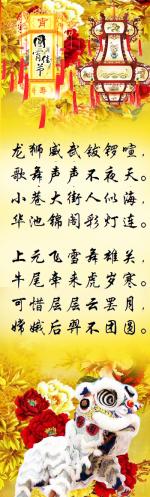 宵
圆
佳
节
龙狮威武钹锣喧，
歌舞声声不夜天。
小巷大街人似海，
华池锦阁彩灯连。
上元飞雪舞雄关，
牛尾牵来虎岁寒。
可惜层层云罢月，
嫦娥后羿不团圆。